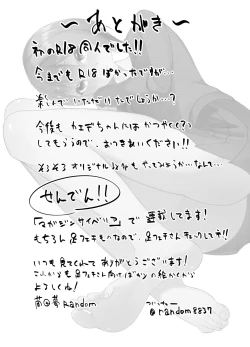 〜あとがき〜
初のR18同人でした!!
今までもR18ばかったですが…
楽しんでいただけたでしょうか…?
今後も カエデちゃんには かつやくして
してもらうので、おつきあいください!!
そろそろオリジナル以外もやってみようか…なんて…
せんでん!!
「マガジンサイベリア」で 連載してます!
もちろん足フェチものなので、足フェチさんチェックして下!!
いつも見てくれて ありがとうございます!
これからも足フェチさん向けばかりの絵かくから
よろしくね!
Random
ついったー
@random8837